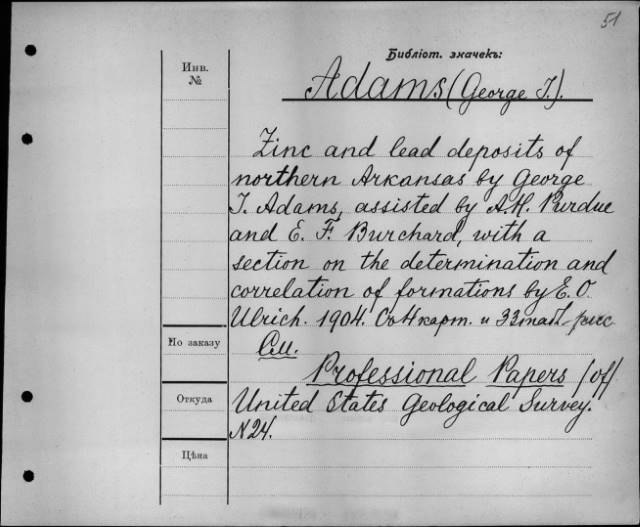 51
Библіот. значекъ:
Инв.
№
Adams (George I.).
Zinc and lead deposits of
northern Arkansas by George
I. Adams, assisted by A.H. Purdue
and E. F. Burchard, with a
section on the determination and
correlation of formations by E. O.
Ulrich. 1904. Съ 4 карт. и 33 табл.
По заказу
См.
Professional Papers (of)
Откуда
United States Geological Survey.
N24.
Цѣна